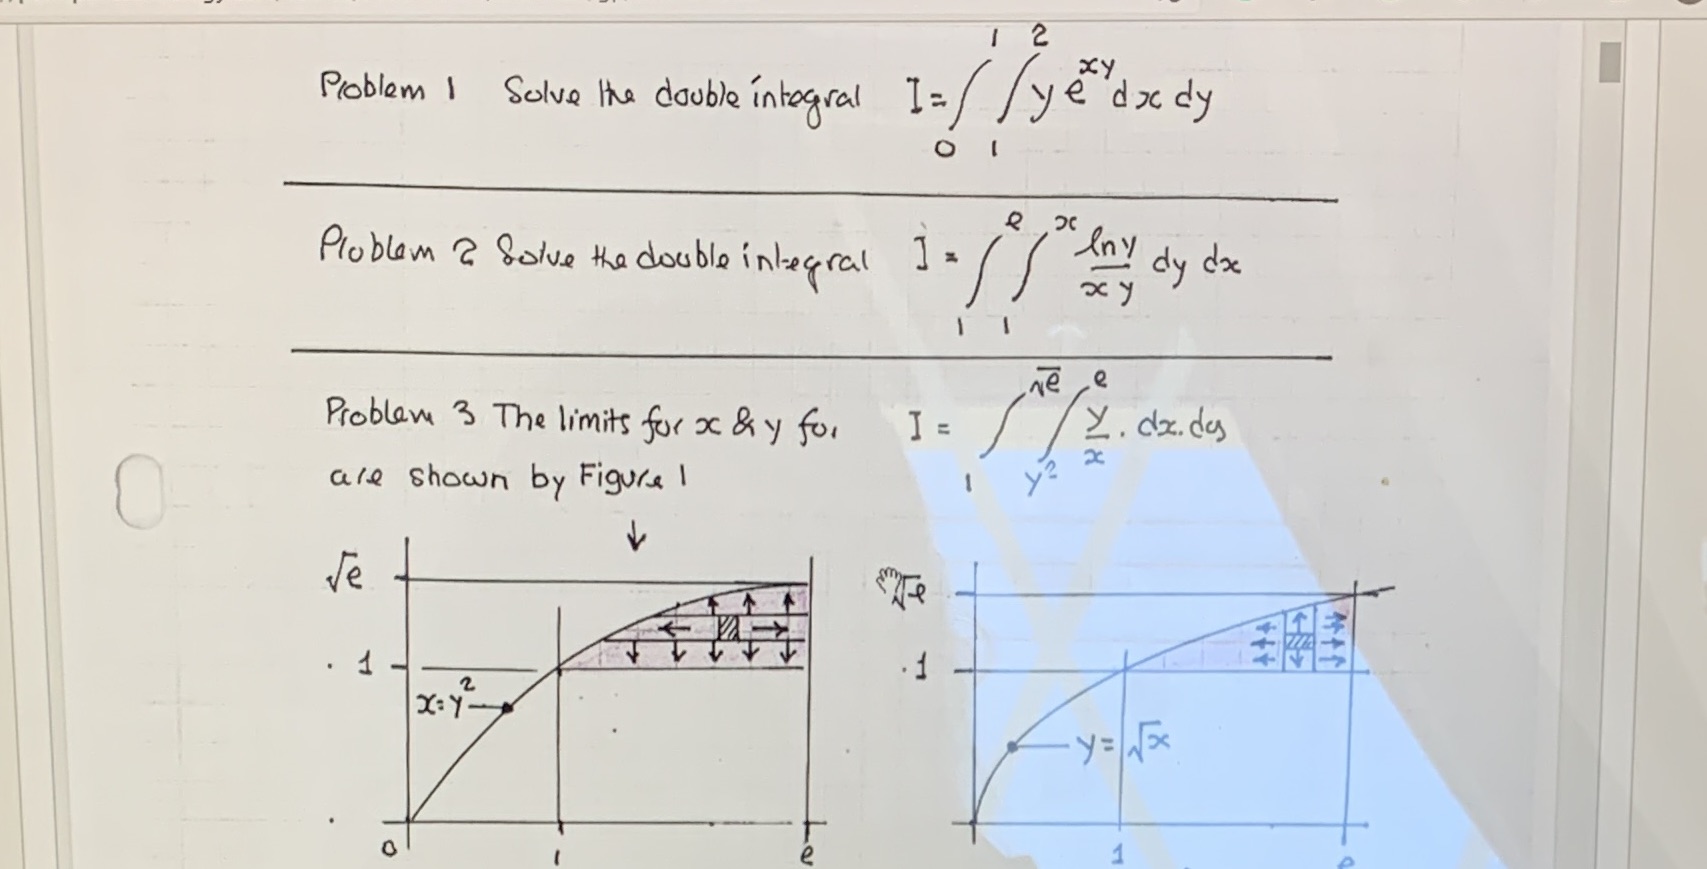 Problem 1 Solve the double integral I = ∫₀¹ ∫₁² y e^{xy} dx dy
Problem 2 Solve the double integral I = ∫₁^e ∫₁^x \frac{ln y}{x y} dy dx
Problem 3 The limits for x & y for I = ∫₁^{√e} ∫_{y²}^e \frac{y}{x} . dx. dy
are shown by Figure 1
↓
√e
√e
. 1
. 1
x=y²
y=√x
0 1 e
1 e